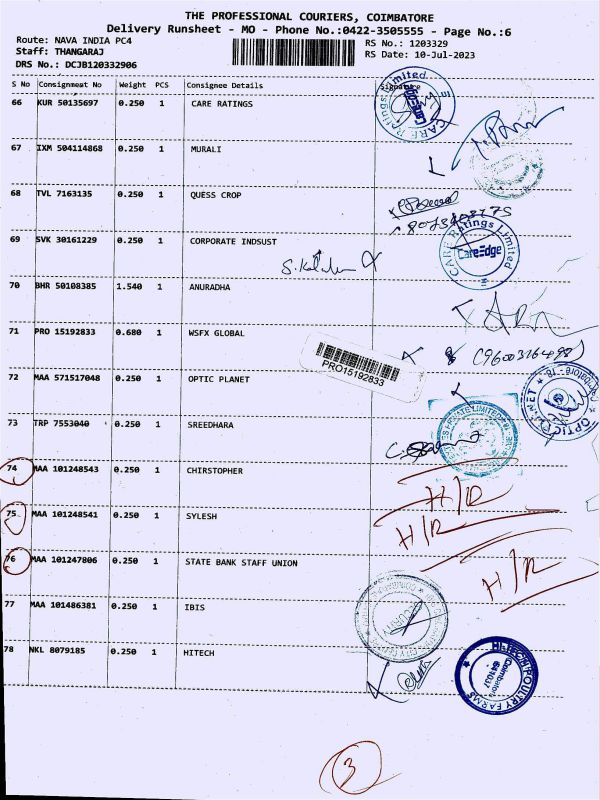 THE PROFESSIONAL COURIERS, COIMBATORE
Delivery Runsheet - MO - Phone No.:0422-3505555 - Page No.:6
Route: NAVA INDIA PC4
RS No.: 1203329
Staff: THANGARAJ
RS Date: 10-Jul-2023
DRS No.: DCJB120332906
S No Consignment No Weight PCS Consignee Details Signature
66 KUR 50135697 0.250 1 CARE RATINGS
CARE Ratings Limited
67 IXM 504114868 0.250 1 MURALI
68 TVL 7163135 0.250 1 QUESS CROP
69 SVK 30161229 0.250 1 CORPORATE INDSUST
CARE Ratings Limited
CareEdge
70 BHR 50108385 1.540 1 ANURADHA
71 PRO 15192833 0.680 1 WSFX GLOBAL
PRO15192833
72 MAA 571517048 0.250 1 OPTIC PLANET
73 TRP 7553040 0.250 1 SREEDHARA
74 MAA 101248543 0.250 1 CHIRSTOPHER
H/R
75 MAA 101248541 0.250 1 SYLESH
H/R
76 MAA 101247806 0.250 1 STATE BANK STAFF UNION
H/R
77 MAA 101486381 0.250 1 IBIS
78 NKL 8079185 0.250 1 HITECH
HI-TECH POULTRY FARMS
Coimbatore
641037
3